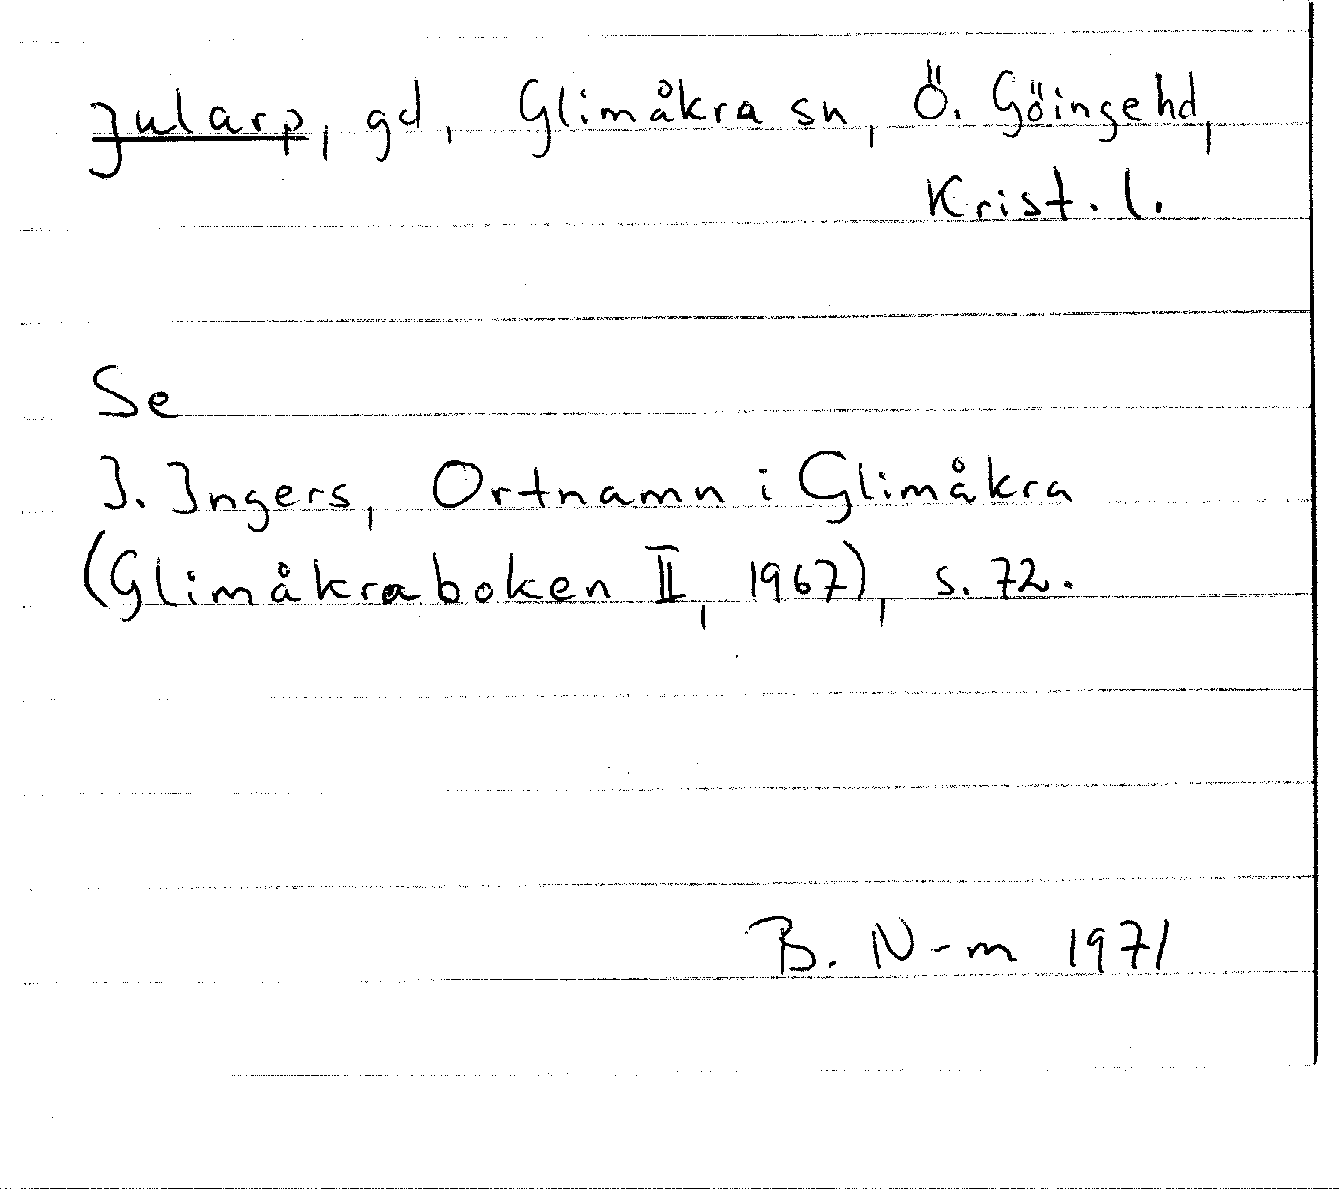 Jularp, gd, Glimåkra sn, Ö. Göingehd,
Krist. l.
Se
I. Ingers, Ortnamn i Glimåkra
(Glimåkraboken II, 1967), s. 72.
B. N-m 1971